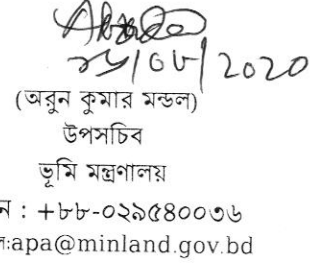 /০৮/২০২০
(অরুন কুমার মন্ডল)
উপসচিব
ভূমি মন্ত্রণালয়
ন : +৮৮-০২৯৫৪০০৩৬
ল:apa@minland.gov.bd